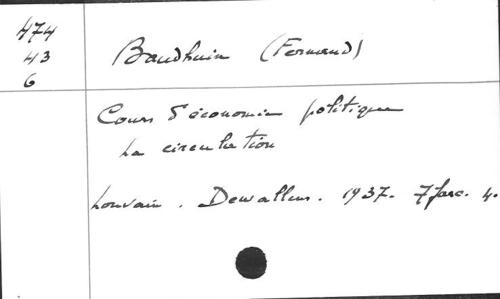 474
43
6
Baudhuin (Fernand)
Cours d'économie politique
La circulation
Louvain. Dewallens. 1937. 7 fasc. 4.